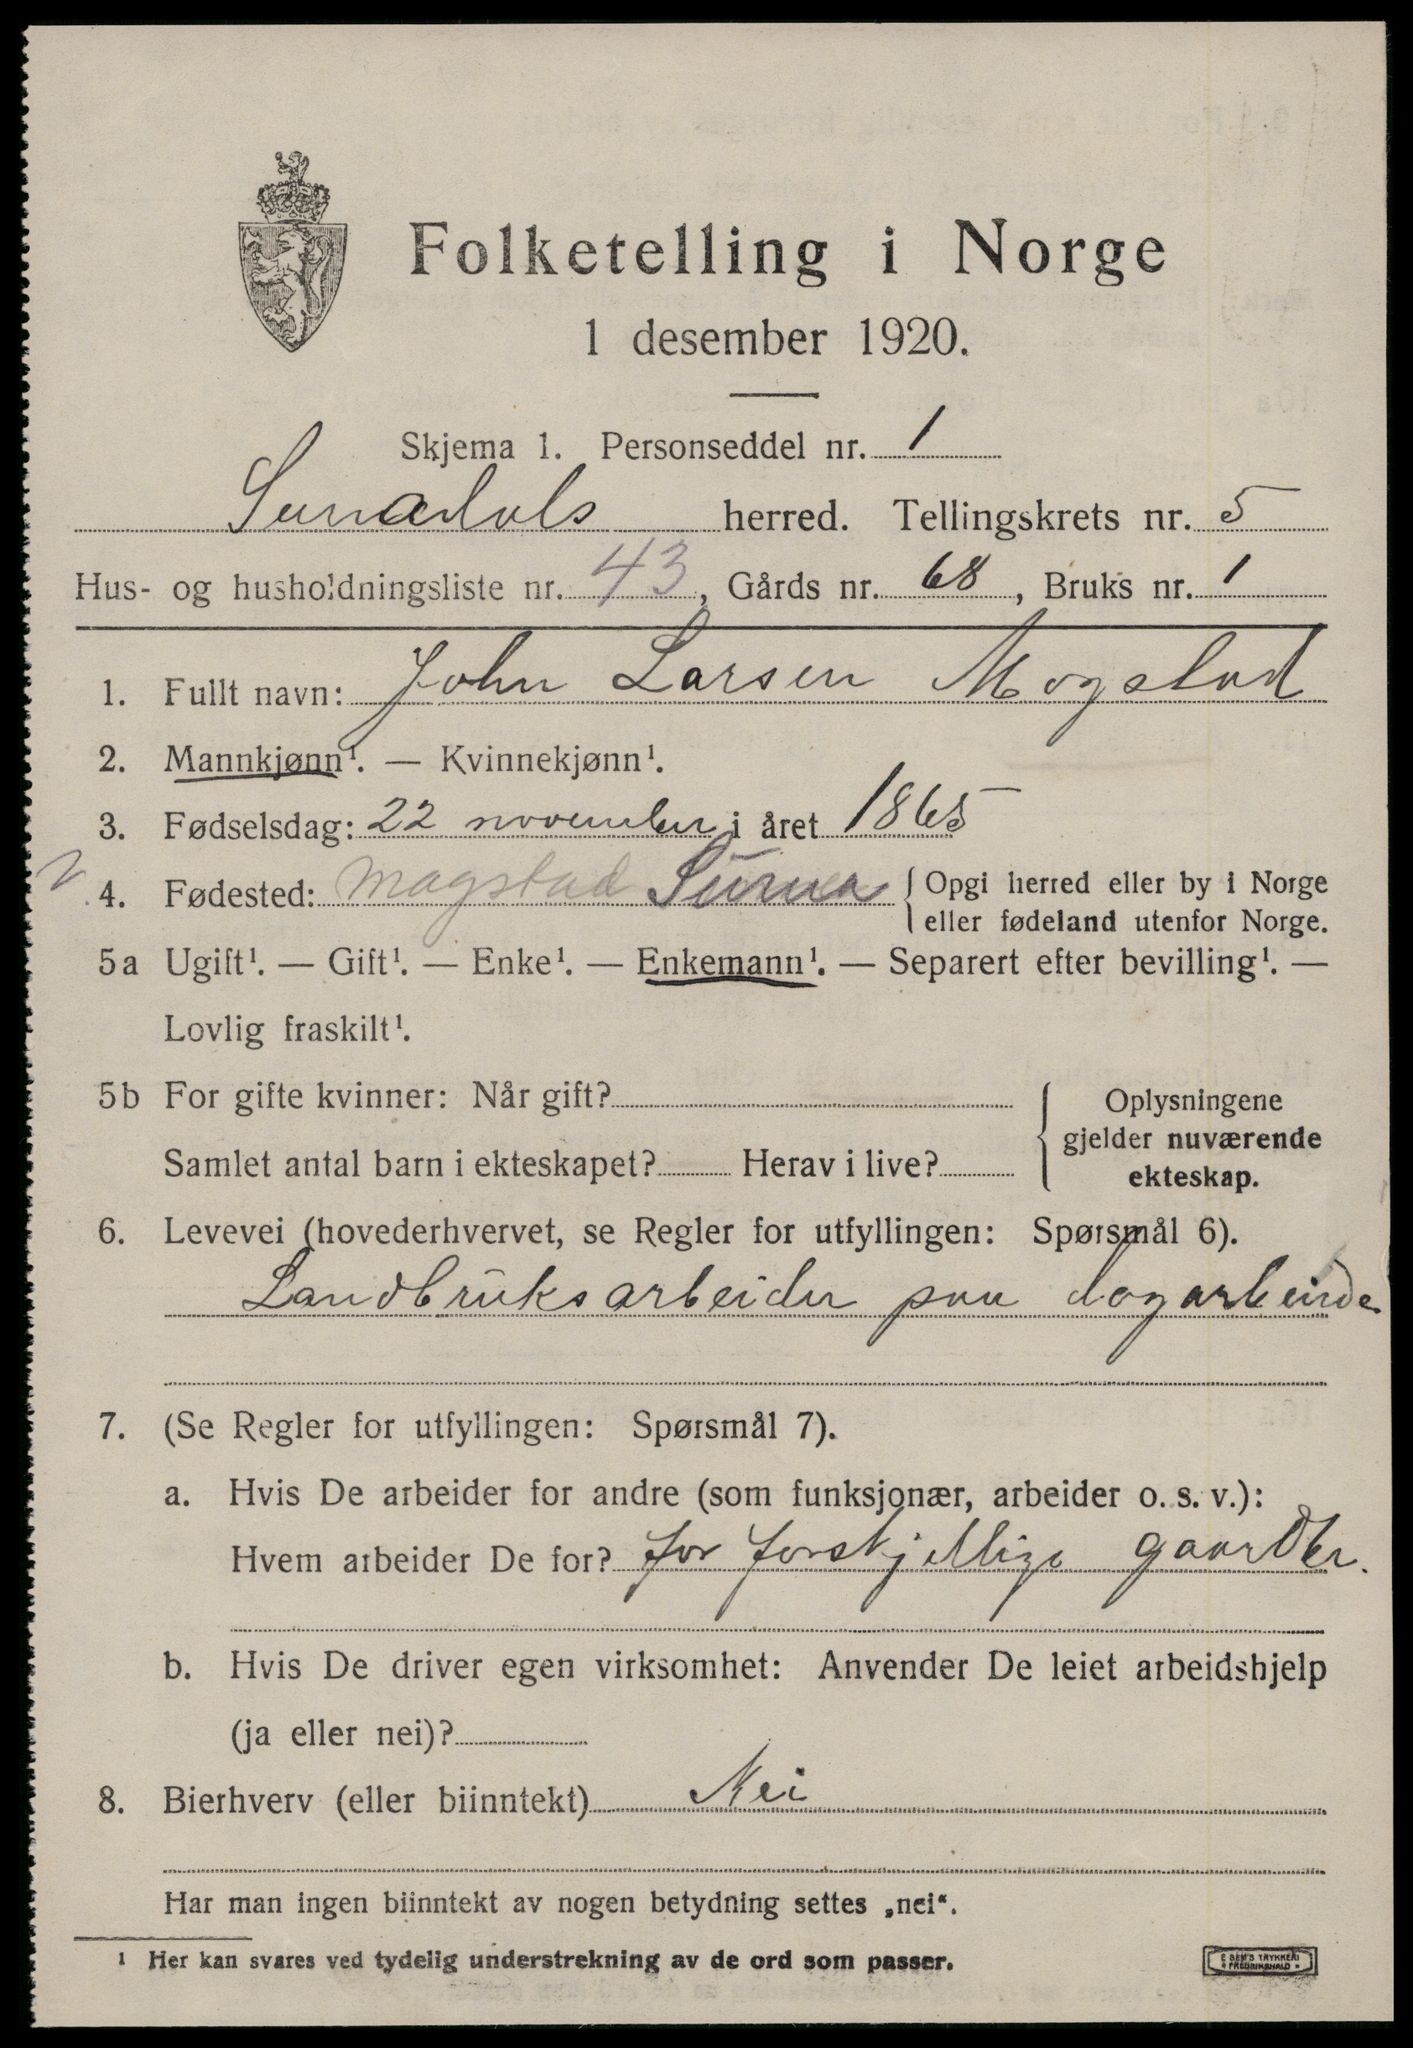 Folketelling i Norge
1 desember 1920.
Skjema 1. Personseddel nr. 1
Sunndals herred. Tellingskrets nr. 5
Hus- og husholdningsliste nr. 43, Gårds nr. 68, Bruks nr. 1
1. Fullt navn: John Larsen Mogstad
2. Mannkjønn¹. — Kvinnekjønn¹.
3. Fødselsdag: 22 november i året 1865
4. Fødested: Magstad Surna { Opgi herred eller by i Norge
eller fødeland utenfor Norge.
5a Ugift¹. — Gift¹. — Enke¹. — Enkemann¹. — Separert efter bevilling¹. —
Lovlig fraskilt¹.
5b For gifte kvinner: Når gift? { Oplysningene
gjelder nuværende
Samlet antal barn i ekteskapet? Herav i live? ekteskap.
6. Levevei (hovederhvervet, se Regler for utfyllingen: Spørsmål 6).
Landbruksarbeider paa dagarbeide
7. (Se Regler for utfyllingen: Spørsmål 7).
a. Hvis De arbeider for andre (som funksjonær, arbeider o. s. v.):
Hvem arbeider De for? for forskjellige gaardbr.
b. Hvis De driver egen virksomhet: Anvender De leiet arbeidshjelp
(ja eller nei)?
8. Bierhverv (eller biinntekt) Nei
Har man ingen biinntekt av nogen betydning settes „nei“.
¹ Her kan svares ved tydelig understrekning av de ord som passer.
E SEM'S TRYKKERI
FREDRIKSHALD